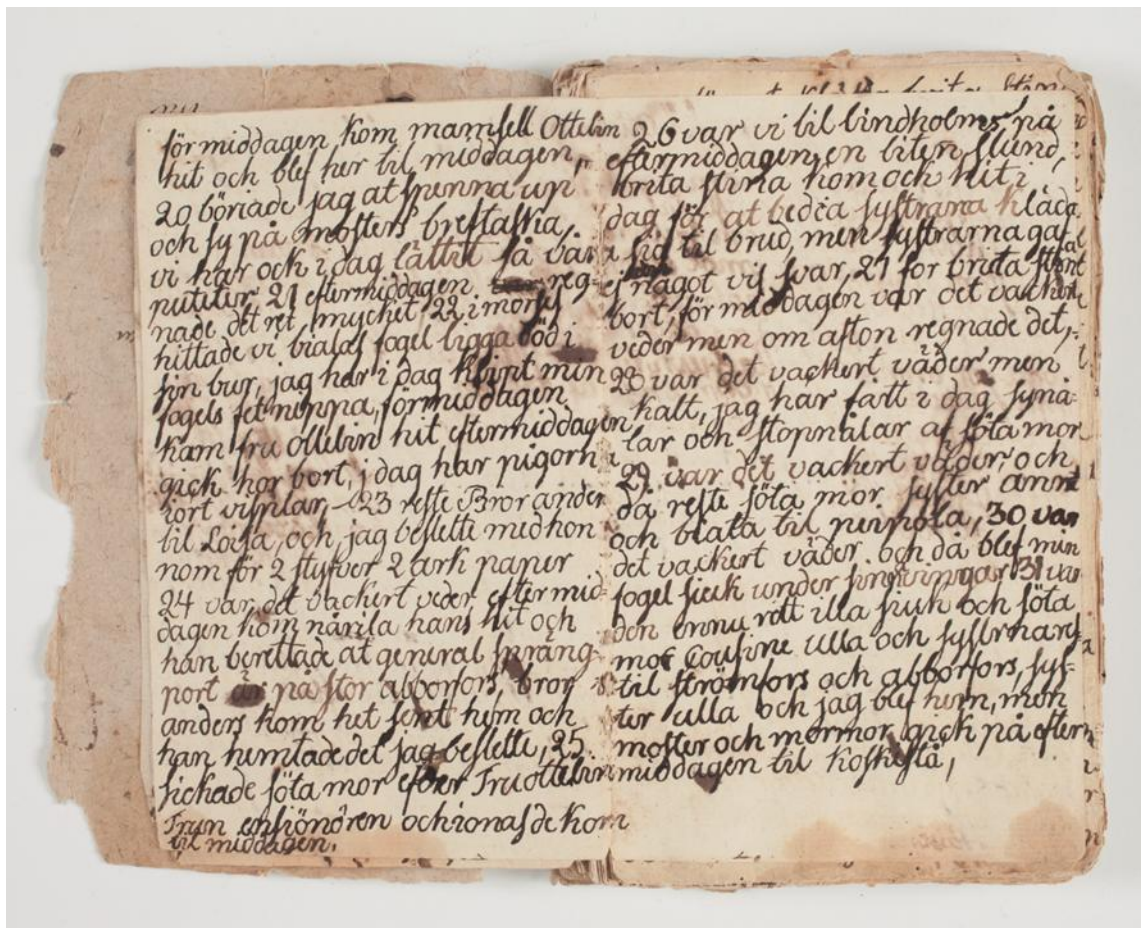 för middagen kom mamsell Ottelin
hit och blef her til middagen,
20 böriade jag at spenna up
och sy på mosters brestaska,
vi har ock i dag lättit så våra
nutitur, 21 eftermiddagen reg-
nade det ret mychet 22 i morses
hittade vi biatas fogel ligga död i
sin bur, jag har i dag klipt min
fogels fet neppa, förmiddagen
kam fru ollebin hit eftermiddagen
gick hor bort, i dag har pigorna
iort visplar, 23 reste Bror anders
til Loisa, och jag bestelte med hon
nom för 2 styfver 2 ark paper
24 var det vackert veder, eftermid-
dagen kom närila hans hit och
han berettade at general språng-
port är på stor abborfors, bror
anders kom het sent hem och
han hemtade det jag bestelte, 25
sickade söta mor efter Fru ottelin
Frun och ionas de kom
til middagen,
26 var vi til lindholms på
eftermiddagen en liten stund,
brita stina kom och hit i
dag för at bedia systrarna kläda
sig til brud, men systrarna gaf
ej något vis svar, 27 for brita stina
bort, för middagen var det vackert
veder men om afton regnade det,
28 var det vackert väder men
kalt, jag har fått i dag synå-
lar och stopnålar af söta mor
29 var det vackert väder, och
då reste söta mor syster anna
och biata til peipola, 30 var
det vackert väder och då blef min
fogel siuk under sine vingar 31 var
den ennu rätt illa siuk och söta
mor Cousine ulla och systrnars
til strömfors och abborfors, sys-
ter ulla och jag blef hem, men
moster och mormor gick på efter-
middagen til koskistå,